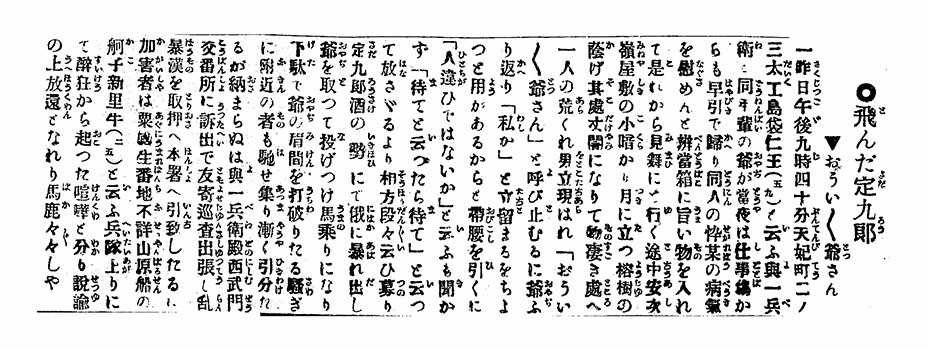 ○飛んだ定九郎
▼おうい〳〵爺さん
一昨日午後九時四十分天妃町二ノ
三太工島袋仁王(五九)と云ふ與一兵
衛に同年輩の爺が當夜は仕事塲か
らも早引で歸り同人の忰某の病氣
を慰めんと辨當箱に旨い物を入れ
て是れから見舞にと行く途中安次
嶺屋敷の小暗かり月に立つ榕樹の
蔭げ其處丈闇になりて物凄き處へ
一人の荒くれ男立現はれ「おうい
〳〵爺さん」と呼び止むるに爺ふ
り返り「私か」と立留まるをちよ
つと用があるからと帶腰を引くに
「人違ひではないか」と云ふも聞か
ず「待てと云つたら待て」と云つ
て放さゞるより相方段々云ひ募り
定九郎酒の勢にて俄に暴れ出し
爺を取つて投げつけ馬乘りになり
下駄で爺の眉間を打破りたる騷ぎ
に附近の者も馳せ集り漸く引分た
るが納まらぬは與一兵衛殿西武門
交番所に訴出で友寄巡査出張し乱
暴漢を取押へ本署へ引致したるに
加害者は粟國生番地不詳山原船の
舸子新里牛(二五)と云ふ兵隊上りに
て醉狂から起つた喧嘩と分り説諭
の上放還となれり馬鹿々々しや